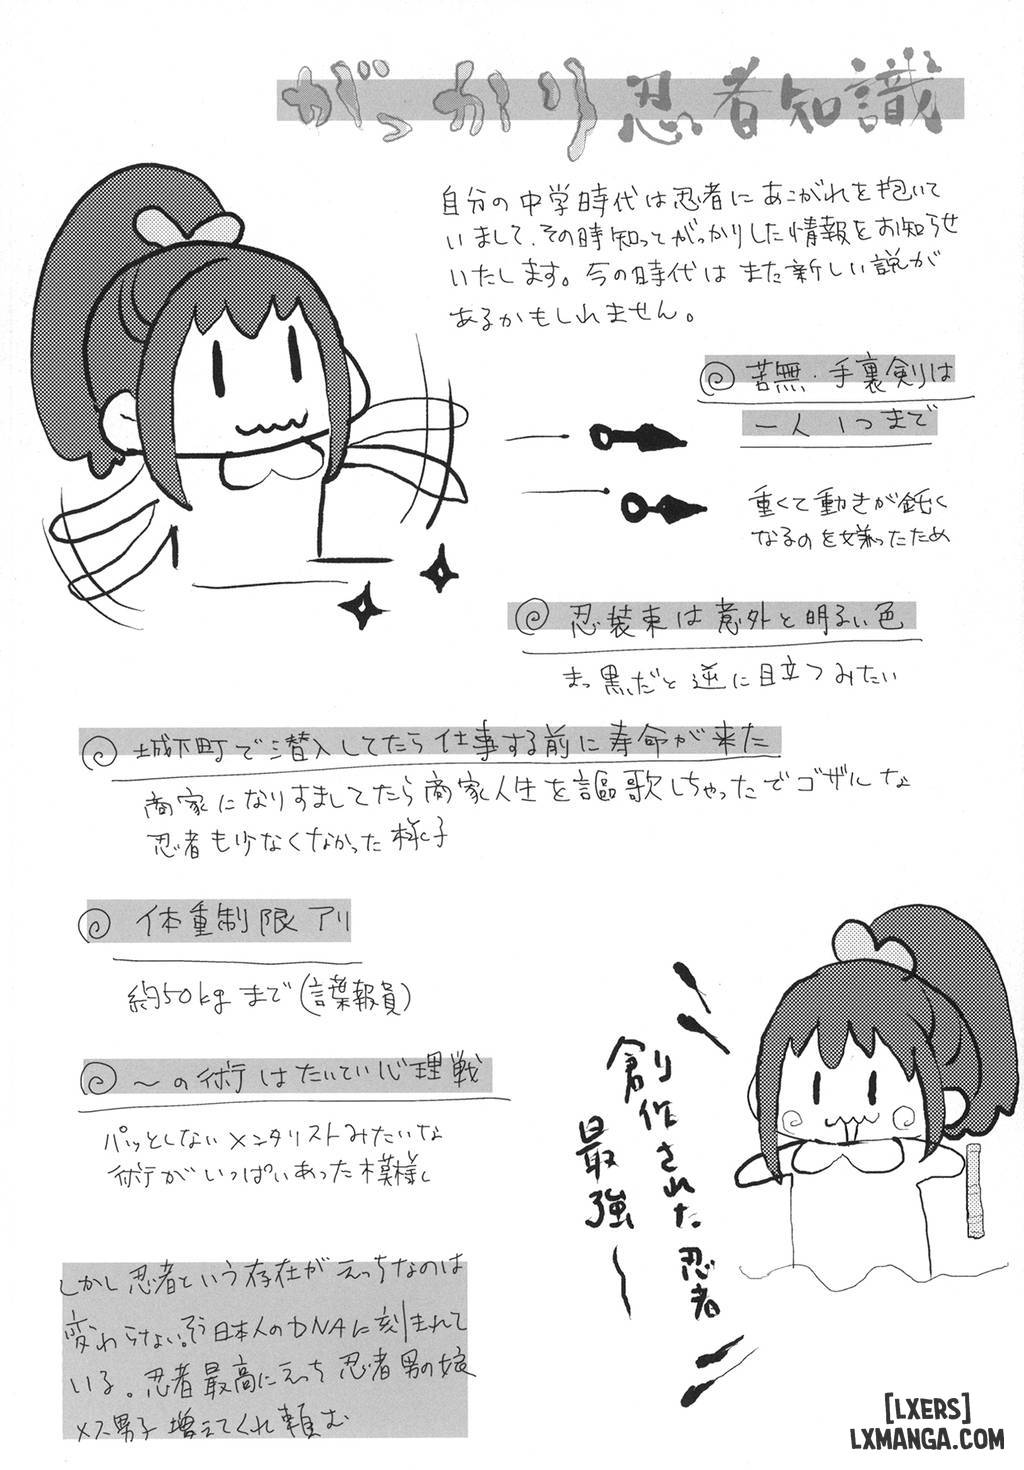 がっかり忍者知識
自分の中学時代は忍者にあこがれを抱いて
いまして、その時知ってがっかりした情報をお知らせ
いたします。今の時代はまた新しい説が
あるかもしれません。
苦無・手裏剣は
一人1つまで
重くて動きが鈍く
なるのを嫌ったため
忍装束は意外と明るい色
まっ黒だと逆に目立つみたい
城下町で潜入してたら仕事する前に寿命が来た
商家になりすましてたら商家人生を謳歌しちゃったでゴザルな
忍者も少なくなかった様子
体重制限アリ
約50kgまで(言葉報員)
〜の術はたいてい心理戦
パッとしないメンタリストみたいな
術がいっぱいあった模様
創作された忍者
最強〜
しかし忍者という存在がえっちなのは
変わらない。そう日本人のDNAに刻まれて
いる。忍者最高にえっち忍者男の娘
メス男子増えてくれ頼む
[LXERS]
LXMANGA.COM